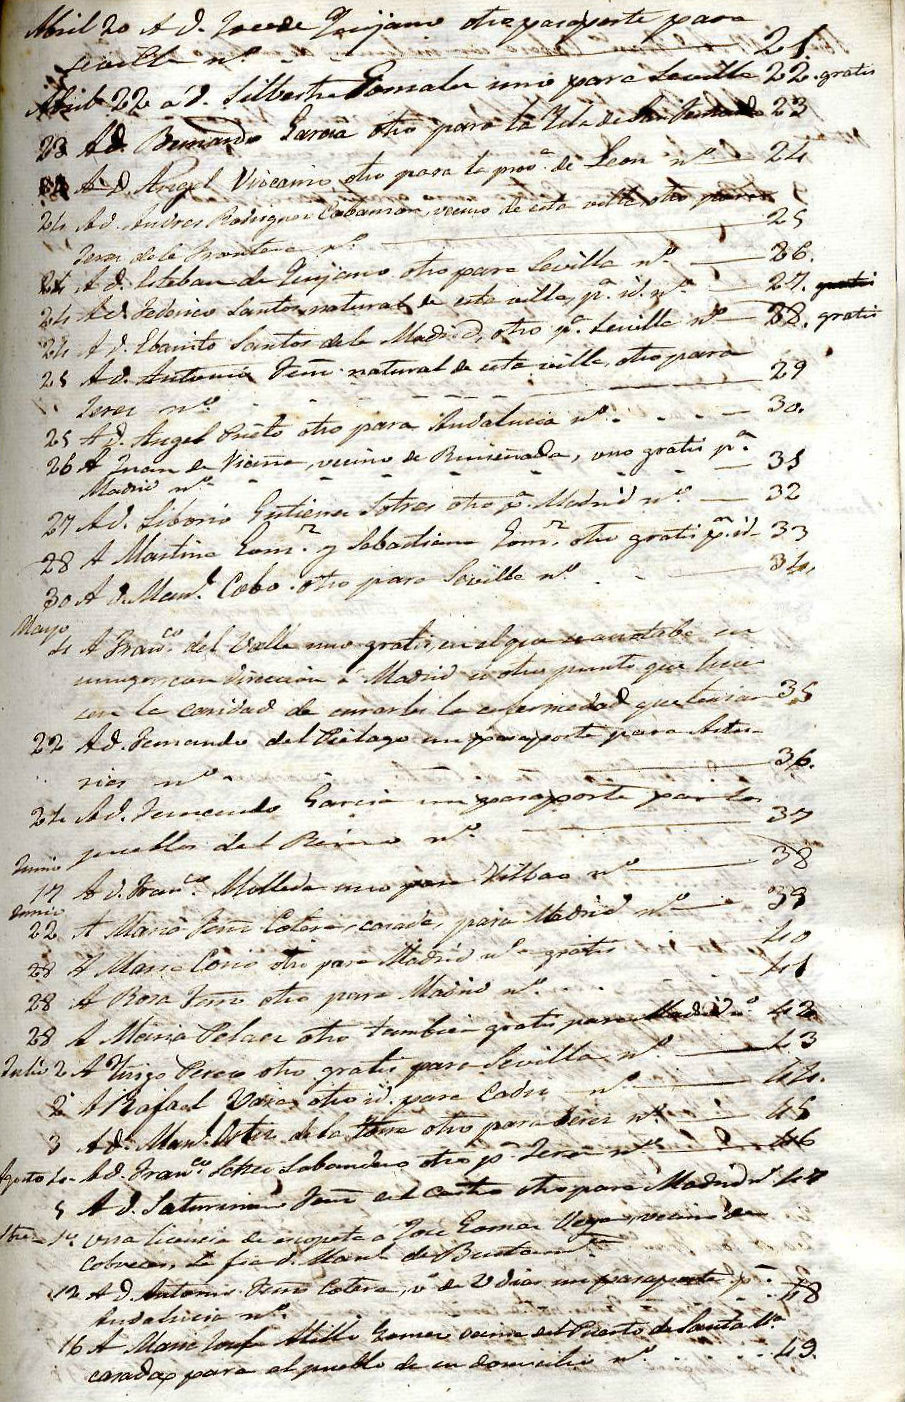 Abril 20 A d. José de Quijano otro pasaporte para
Sevilla nº 21
Abril 22 a d. Silbestre Gonzalez uno para Sevilla 22. gratis
23 A d. Bernardo Garcia otro para la Isla de San Fernando 23
A d. Angel Viscaino otro para la provª de Leon nº 24
24 A d. Andres Rodriguez Cabamzon, vecino de esta villa, otro para
Jerez de la Frontera nº 25
24 A d. Esteban de Quijano otro para Sevilla nº 26.
24 A d. Federico Santos, natural de esta villa, pª id. nº 27. gratis
24 A d. Santos de la Madrid, otro pª Sevilla nº 28. gratis
25 A d. Antonio natural de esta villa, otro para
Jerez nº 29
25 A d. Angel Prieto otro para Andalucia nº 30.
26 A Juan de Vicaña, vecino de Ruiseñada, uno gratis pª
Madrid nº 31
27 A d. Liborio Gutierrez otro pª Madrid nº 32
28 A Martina Gomz y Sebastiana Gomz otro gratis pª id 33
30 A d. Manl Cobo otro para Sevilla nº 34.
Mayo
4 A Franco del Valle uno gratis, en el que se anotaba su
muger, con direccion a Madrid ú otro punto que
con la caridad de curarles la enfermedad que 35
22 A d. Fernando del Pielago un pasaporte para Astu-
rias nº 36.
24 A d. Fernando Garcia un pasaporte para los
pueblos del Reino nº 37
Junio
17 A d. Franco Molleda uno para Vilbao nº 38
Junio
22 A Maria Cotera, casada, para Madrid nº 39
28 A Maria Cosio otro para Madrid nº gratis 40
28 A Rosa otro para Madrid nº 41
28 A Maria Pelaez otro tambien gratis para Madrid nº 42
Julio 2 A Iñigo Perez otro gratis para Sevilla nº 43
2 A Rafael otro id. para Cadiz nº 44.
3 A d. Manl de la Torre otro para Jerez nº 45
Agosto 4 A d. Franco otro pª Jerez nº 46
5 A d. Saturnino del Castro otro para Madrid nº 47
1º una licencia de escopeta a José Gomez Vega, vecino de
Cobreces
12 A d. Antonio Cotera, vº de Udias un pasaporte pª
Andalucia nº 48
16 A Maria Gomez vecina del Puerto de Santa Mª
casada, para el pueblo de su domicilio nº 49.